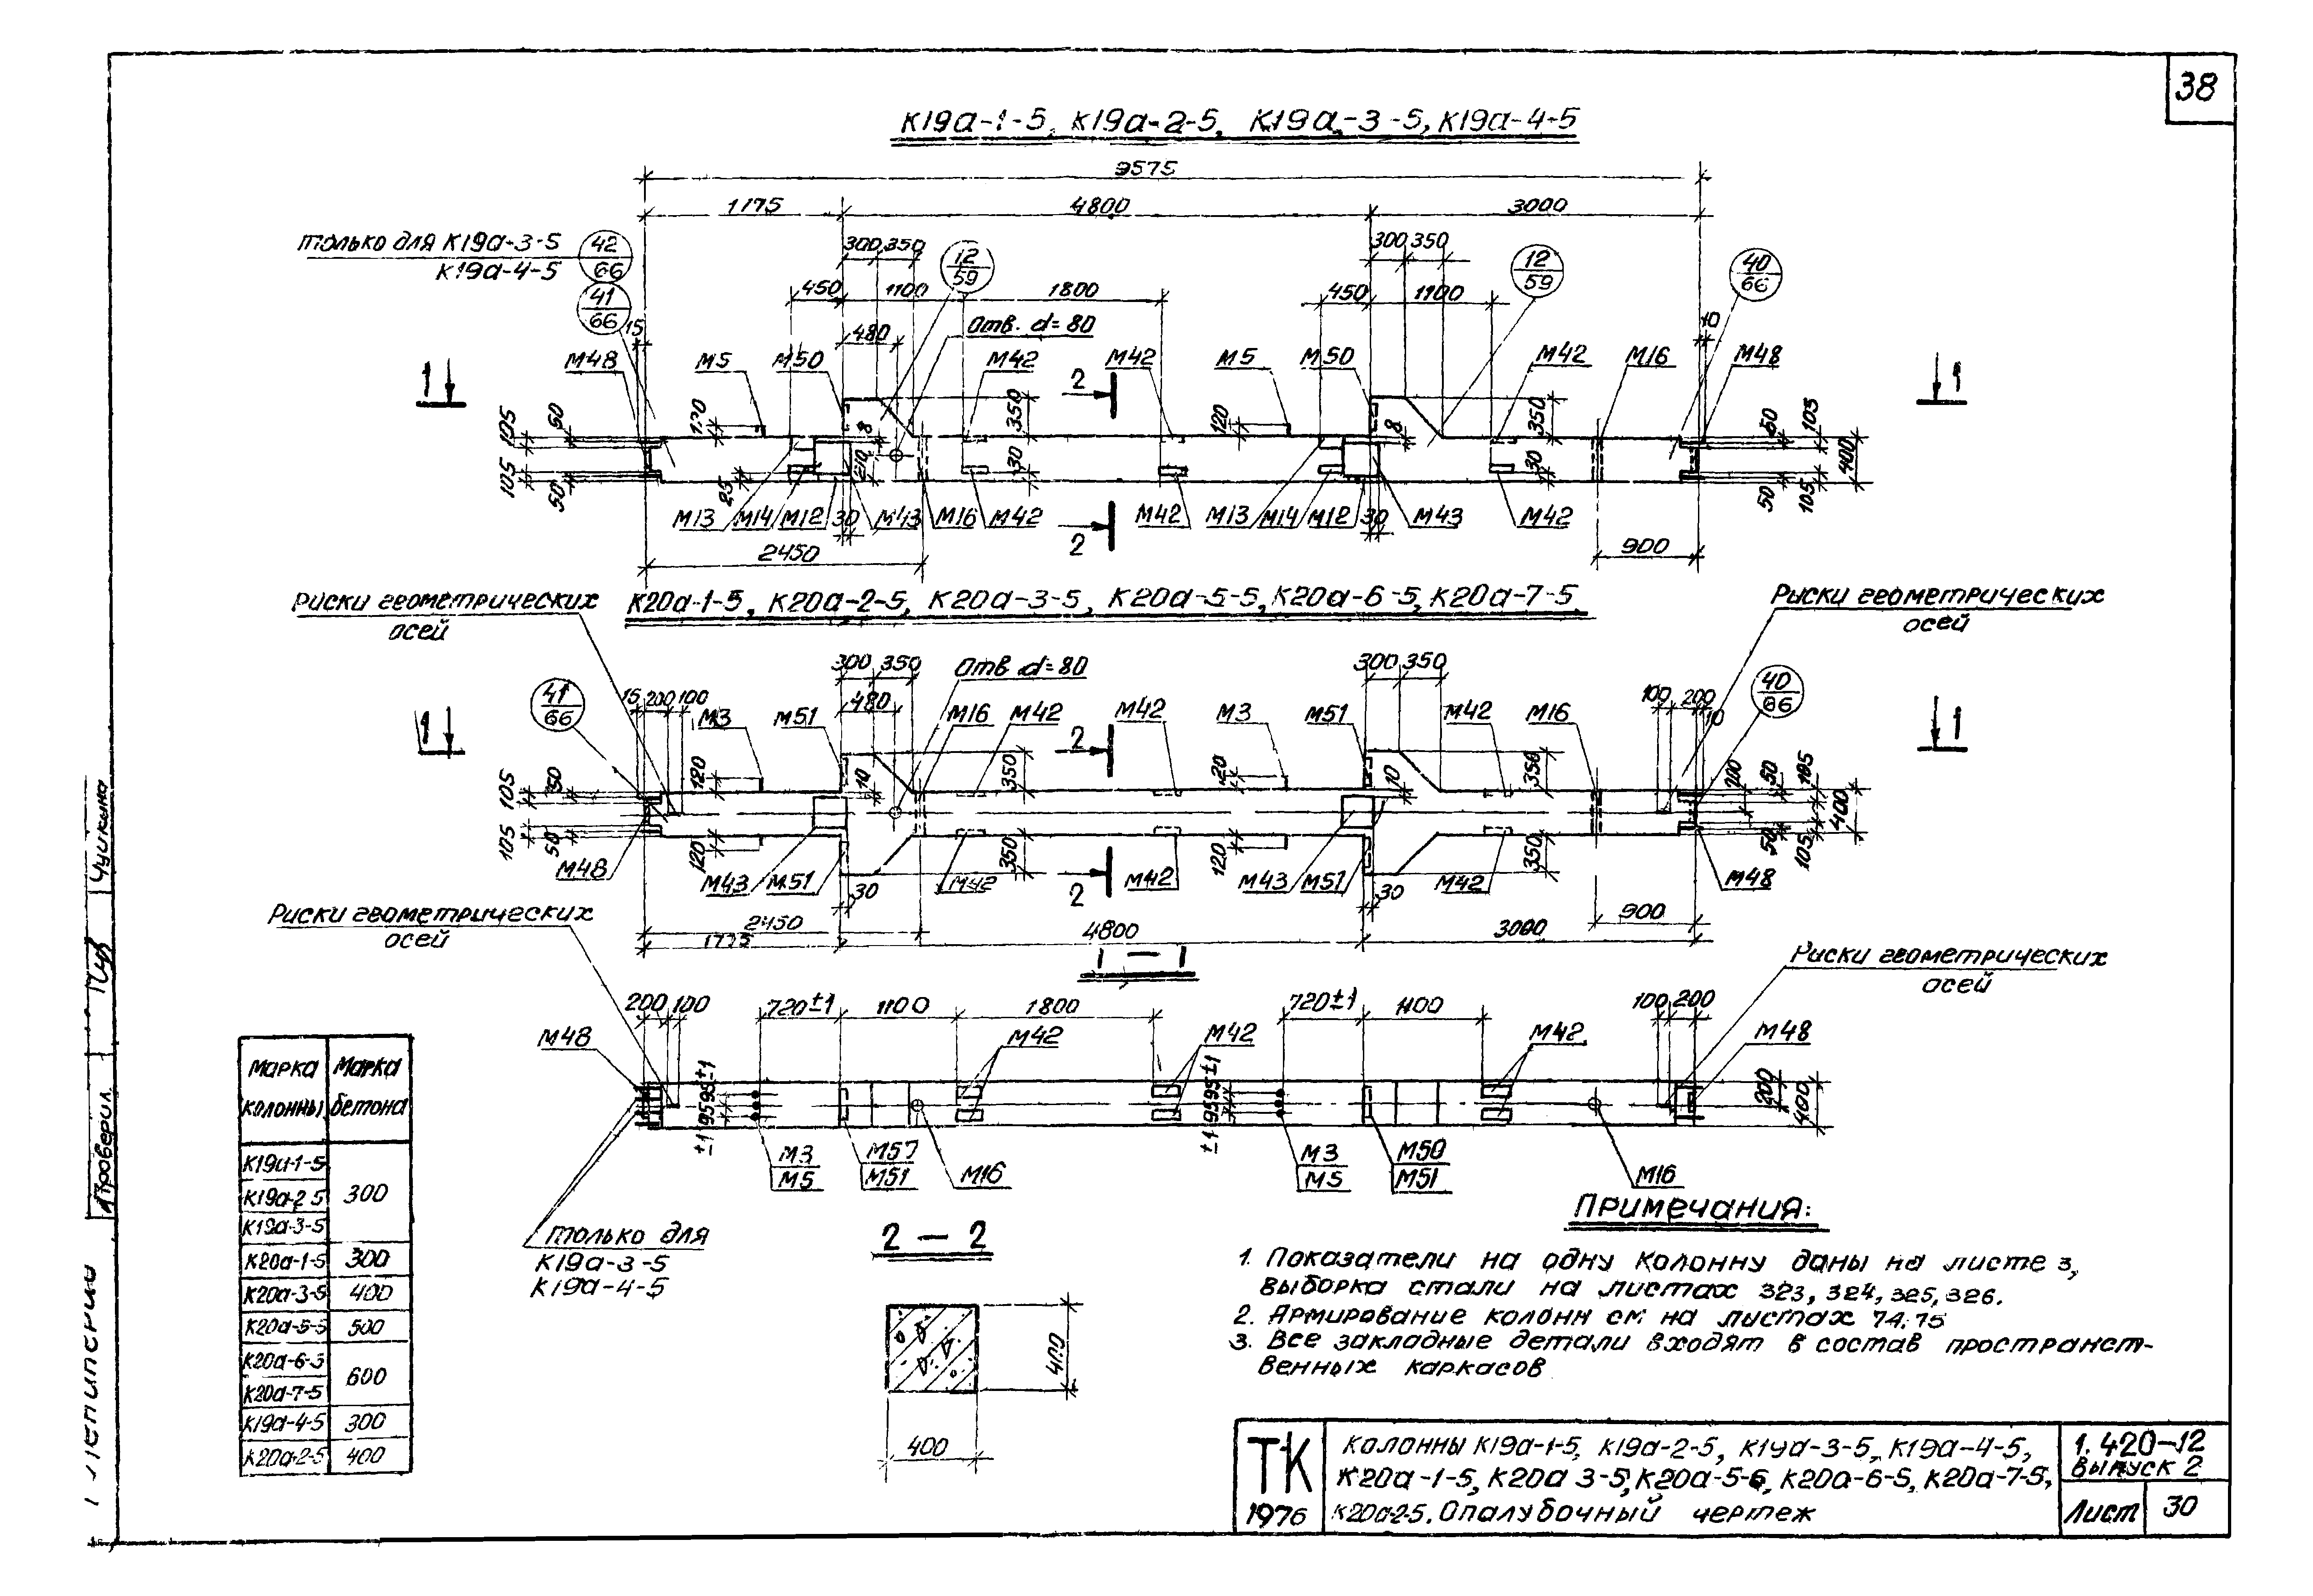 38
К19а-1-5, К19а-2-5, К19а-3-5, К19а-4-5
9575
1775 4800 3000
только для К19а-3-5
К19а-4-5
42
66
41
66
300 350
12
59
300 350
12
59
40
66
450 1100 1800 450 1100
15 480 Отв. d=80 10
М48 М5 М50 М42 М42 М5 М50 М42 М16 М48
1 2 1
105 50 120 8 350 120 8 350 50 105
105 50 25 210 30 30 50 105 400
М13 М14 М12 30 М43 М16 М42 М42 М13 М14 М12 30 М43 М42
2
2450 900
К20а-1-5, К20а-2-5, К20а-3-5, К20а-5-5, К20а-6-5, К20а-7-5
Риски геометрических
осей
Риски геометрических
осей
300 350 Отв d=80 300 350
41
66
40
66
15 200 100 480 100 200 10
М3 М51 М16 М42 М42 М3 М51 М42 М16
1 2 1
105 50 120 10 350 120 10 350 200 50 105
105 50 120 350 120 350 50 105 400
М48 М43 М51 М42 М42 М43 М51 М42 М48
30 2 30
2450 900
1775 4800 3000
Риски геометрических
осей
1 - 1
Риски геометрических
осей
200 100 720±1 1100 1800 720±1 1100 100 200
М48 М42 М42 М42 М48
±1 95 95 ±1 ±1 95 95 ±1 200 400
М3
М5
М51
М16
М3
М5
М50
М51
М16
только для
К19а-3-5
К19а-4-5
2 - 2
400
400
Марка колонны Марка бетона
К19а-1-5
К19а-2 5 300
К19а-3-5
К20а-1-5 300
К20а-3-5 400
К20а-5-5 500
К20а-6-5
К20а-7-5 600
К19а-4-5 300
К20а-2-5 400
Примечания:
1. Показатели на одну колонну даны на листе 3,
выборка стали на листах 323, 324, 325, 326.
2. Армирование колонн см на листах 74, 75
3. Все закладные детали входят в состав пространст-
венных каркасов
ТК
1976
Колонны К19а-1-5, К19а-2-5, К19а-3-5, К19а-4-5,
К20а-1-5, К20а 3-5, К20а-5-5, К20а-6-5, К20а-7-5,
К20а-2-5. Опалубочный чертеж
1.420-12
выпуск 2
Лист 30
Проверил.
Чушкина